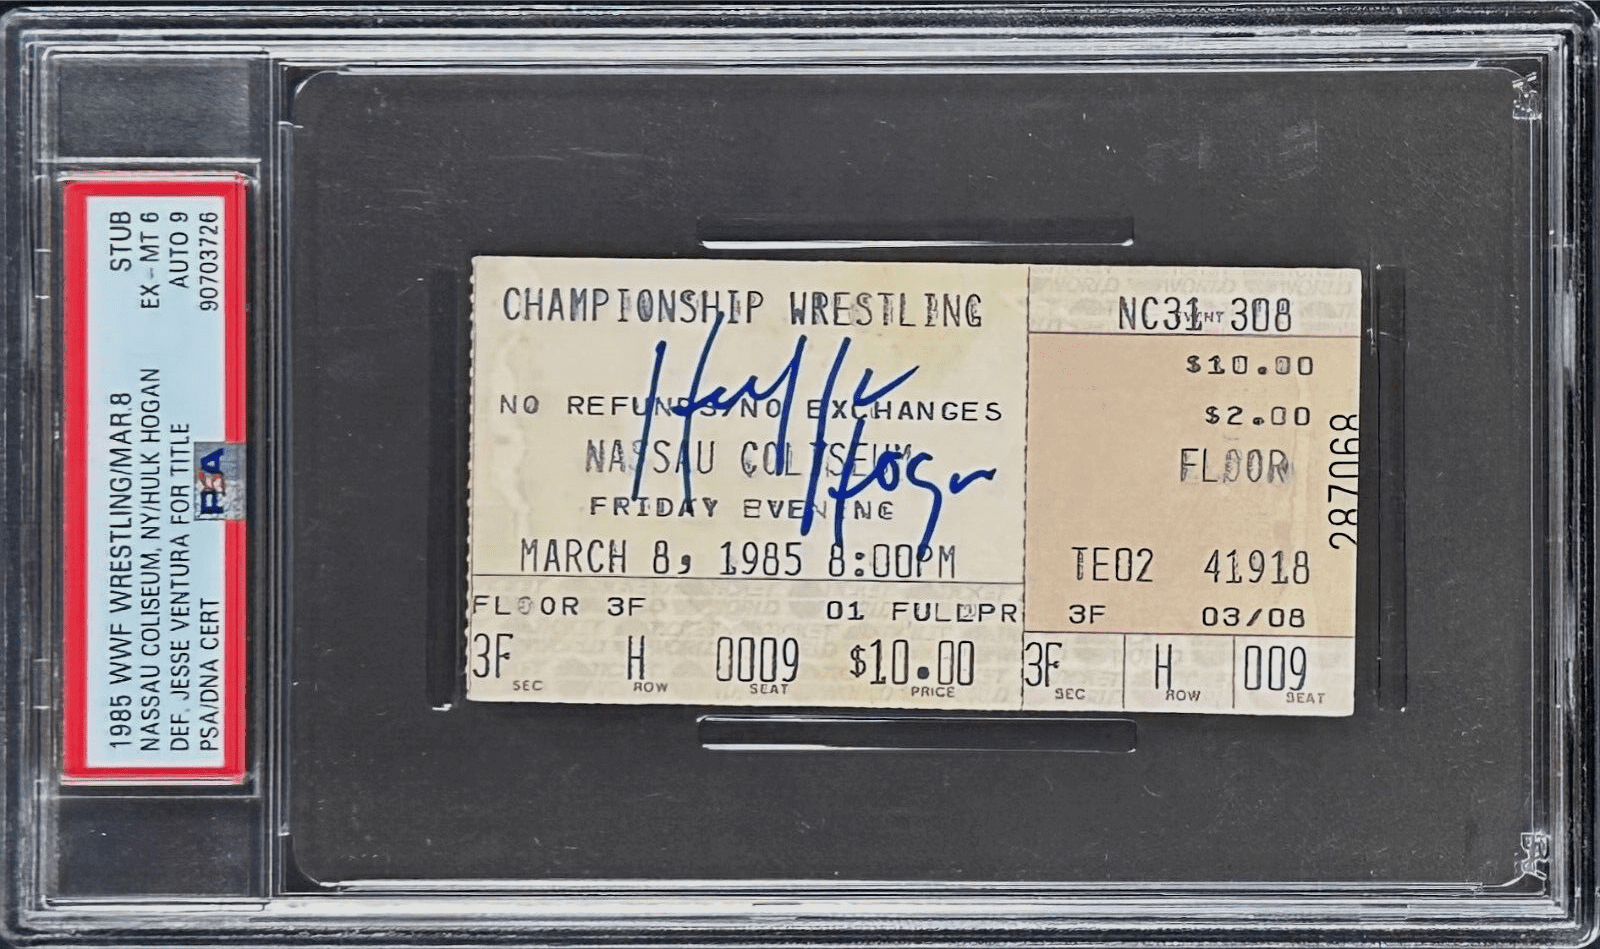 1985 WWF WRESTLING/MAR.8 STUB
NASSAU COLISEUM, NY/HULK HOGAN EX-MT 6
DEF. JESSE VENTURA FOR TITLE AUTO 9
PSA/DNA CERT 90703726
PSA
CHAMPIONSHIP WRESTLING
Hulk
Hogan
NO REFUNDS/NO EXCHANGES
NASSAU COLISEUM
FRIDAY EVENING
MARCH 8, 1985 8:00PM
FLOOR 3F 01 FULLPR
3F H 0009 $10.00
SEC ROW SEAT PRICE
NC31 308
$10.00
$2.00
FLOOR
TE02 41918
3F 03/08
3F H 009
SEC ROW SEAT
287068